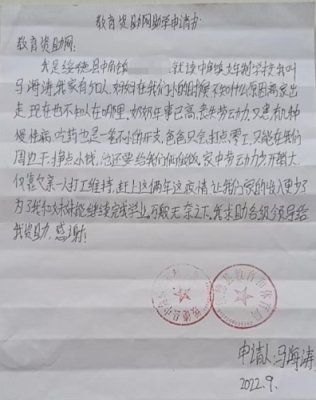 教育资助网助学申请书
教育资助网:
我是绥德县中角镇 就读中角镇九年制学校我叫
马海涛,我家有5口人,妈妈在我们小的时候不知什么原因离家出
走,现在也不知人在哪里,奶奶年事已高,丧失劳动力,又患有几种
慢性病,吃药也是一笔不小的开支,爸爸只会打点零工,又只能在我们
周边干,挣点小钱,他还要给我们做做饭。家中劳动力少开销大
仅靠父亲一人打工维持,赶上这俩年这疫情让我们家的收入更少了
为了我和妹妹能继续完成学业,万般无奈之下,我求助各级领导给
我资助,感谢!
申请人:马海涛
2022.9.